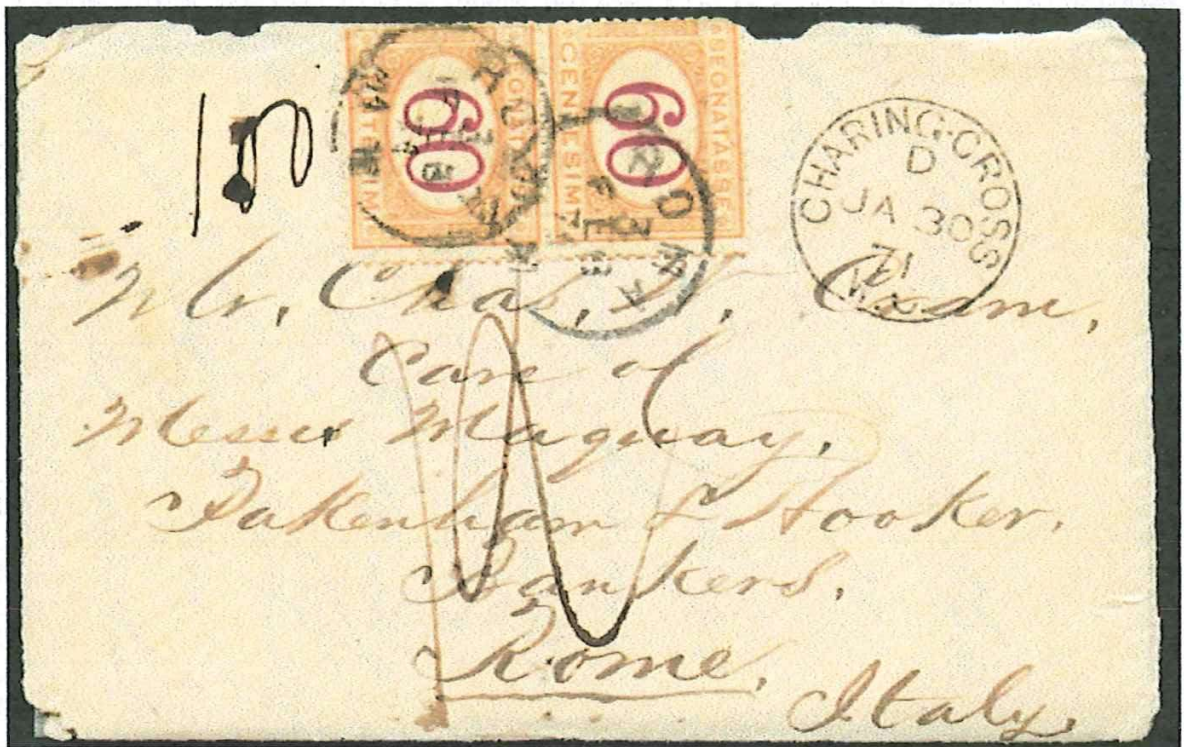 60
SEGNATASSE
CENTESIMI
60
ROMA
ROMA
CHARING-CROSS
D
JA 30
71
W.C
Mr, Chas,
Care of
Messrs Maquay,
Pakenham & Hooker,
Bankers,
Rome,
Italy,